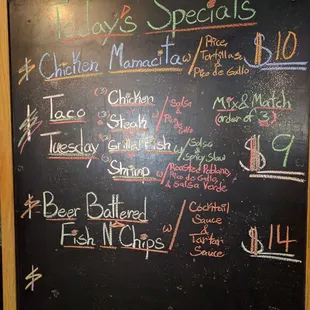 Today's Specials
Chicken Mamacita w/ Rice, Tortillas & Pico de Gallo $10
Taco Tuesday
(3) Chicken / Salsa & Pico de Gallo
(3) Steak
(3) Grilled Fish w/ Salsa & Spicy Slaw
(3) Shrimp / Roasted Poblano, Pico de Gallo, & Salsa Verde
Mix & Match
(order of 3)
$9
Beer Battered
Fish N' Chips w/ Cocktail Sauce & Tartar Sauce
$14